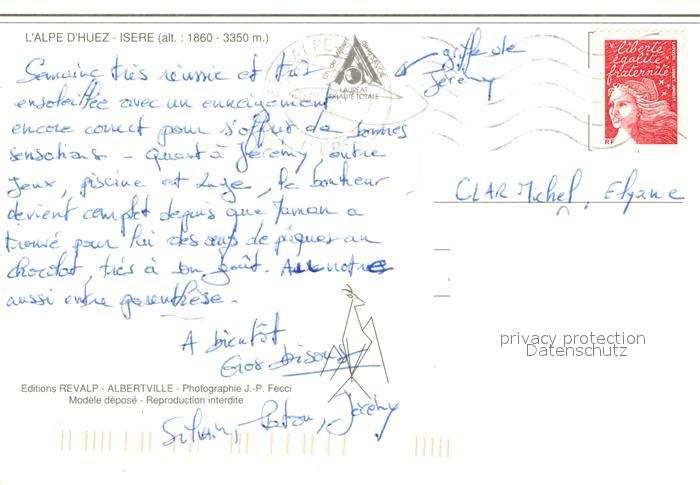 L'ALPE D'HUEZ - ISERE (alt. : 1860 - 3350 m.)
Semaine très réussie et très
ensoleillée avec un enneigement
encore correct pour s'offrir de bonnes
sensations - quant à Jérémy, entre
jeux, piscine et luge, le bonheur
devient complet depuis que Maman a
trouvé pour lui des œufs de pâques au
chocolat, très à son goût. Au notre
aussi entre parenthèse.
A bientôt
Gros bisous
Sylvain, Jérémy
griffe de
Jérémy
LAURÉAT
QUALITÉ TOTALE
liberté
égalité
fraternité
RF
LA POSTE
CLAR Michel, Elyane
privacy protection
Datenschutz
Editions REVALP - ALBERTVILLE - Photographie J.-P. Fecci
Modèle déposé - Reproduction interdite